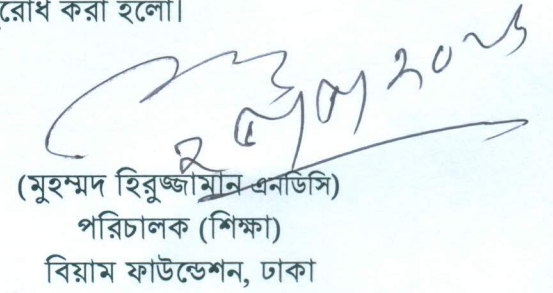 রোধ করা হলো।
(মুহম্মদ হিরুজ্জামান এনডিসি)
পরিচালক (শিক্ষা)
বিয়াম ফাউন্ডেশন, ঢাকা